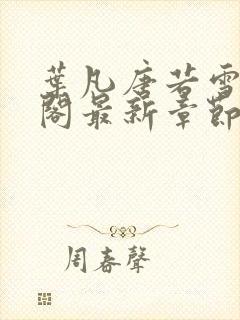 葉凡唐若雪
閣最新章節
周春聲